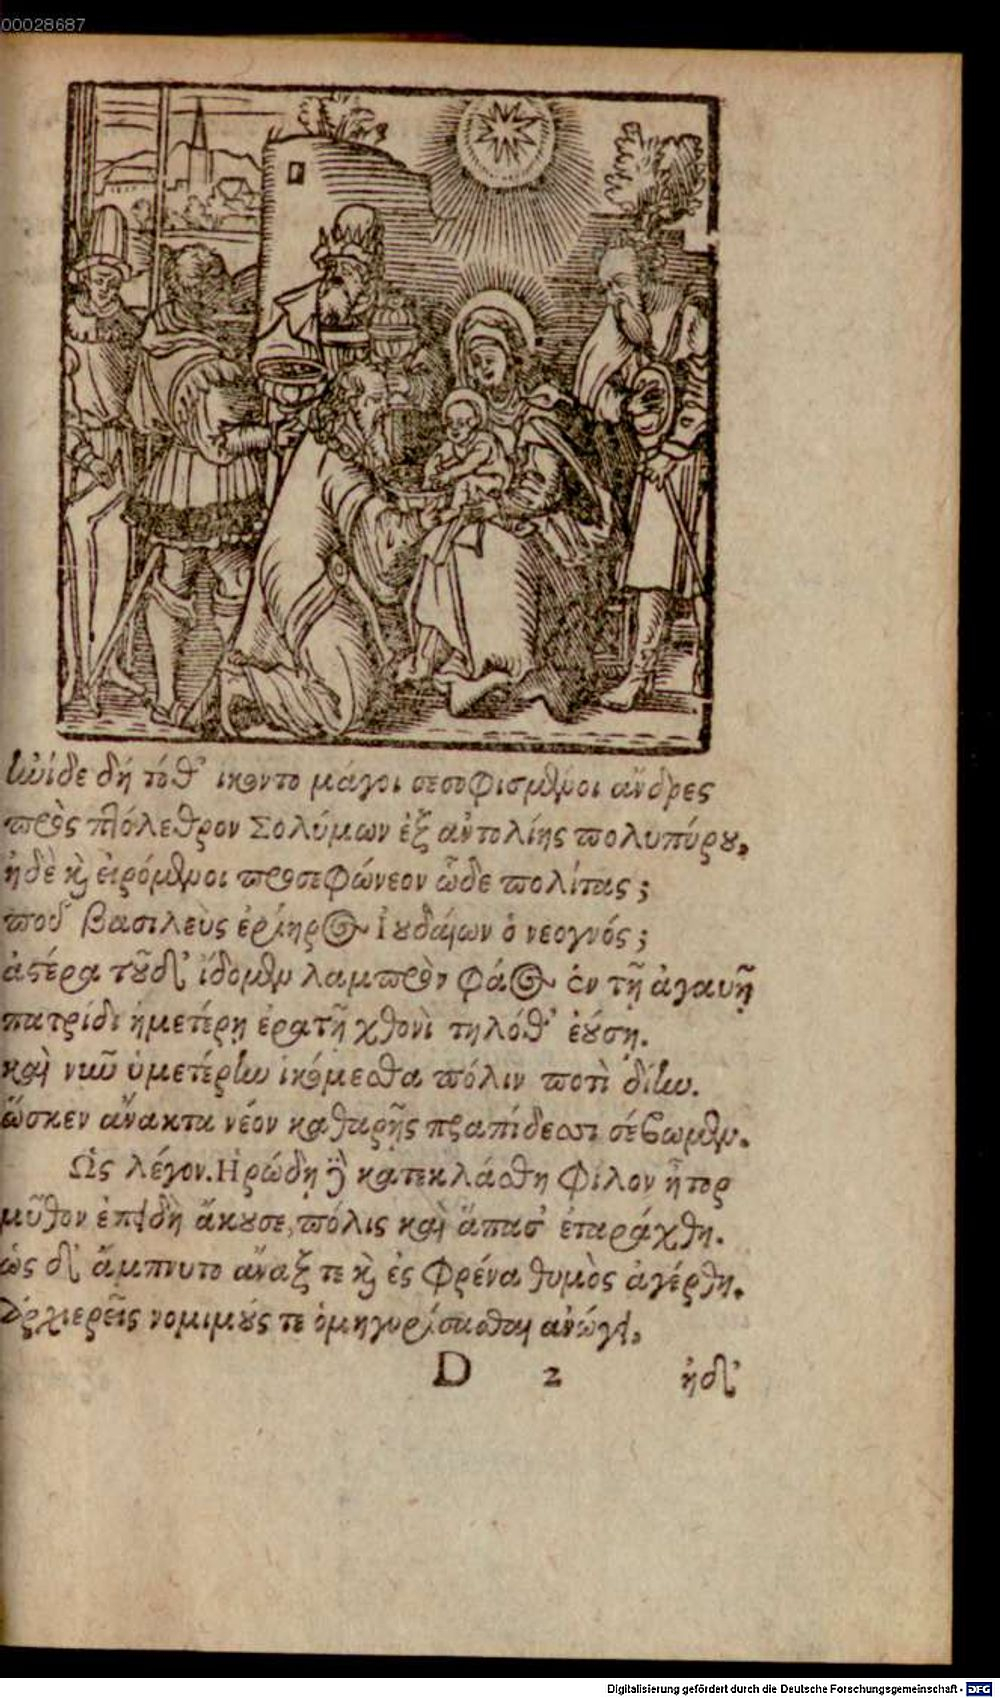 00028687
τόθ' ἵκοντο μάγοι σεσοφισμένοι ἄνδρες
πρὸς πτόλεθρον Σολύμων ἐξ ἀντολίης πολυπύρου,
ἠδὲ καὶ εἰρόμενοι προσεφώνεον ὧδε πολίτας;
ποῦ βασιλεὺς ἐρίηρος Ἰουδαίων ὁ νεογνός;
ἀστέρα τοῦδ' ἴδομεν λαμπρὸν φάος ἐν τῇ ἀγαυῇ
πατρίδι ἡμετέρῃ ἐρατῇ χθονὶ τηλόθ' ἐούσῃ.
καὶ νῦν ὑμετέρην ἱκόμεσθα πόλιν ποτὶ δῖαν.
ὥσκεν ἄνακτα νέον καθαρῇς πραπίδεσσι σέβωμεν.
Ὣς λέγον. Ἡρώδῃ δὲ κατεκλάσθη φίλον ἦτορ
μῦθον ἐπειδὴ ἄκουσε, πόλις καὶ ἅπασ' ἐταράχθη.
ὡς δ' ἄμπνυτο ἄναξ τε καὶ ἐς φρένα θυμὸς ἀγέρθη.
Ἀρχιερεῖς νομιμούς τε ὁμηγυρίσασθαι ἀνώγει,
D 2 ἠδ'
Digitalisierung gefördert durch die Deutsche Forschungsgemeinschaft - DFG